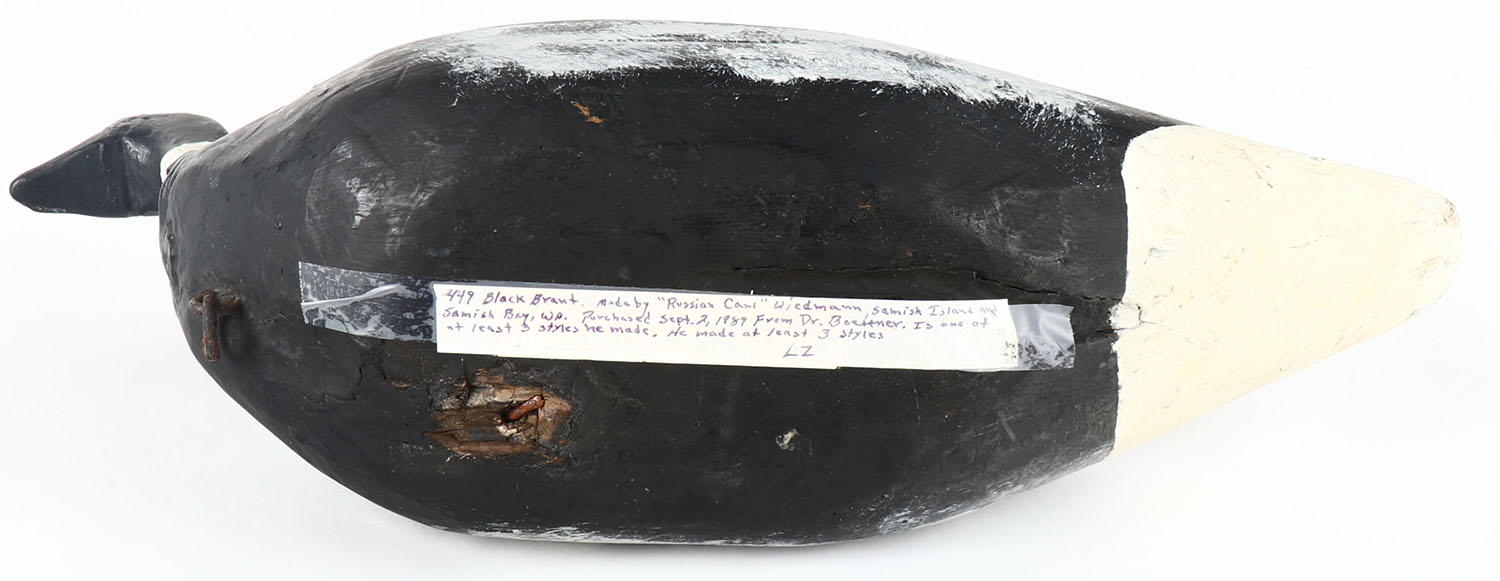 449 Black Brant. Made by "Russian Carl" Wiedmann, Samish Island and
Samish Bay, WA. Purchased Sept. 2, 1989 From Dr. Boettner. Is one of
at least 3 styles he made. He made at least 3 styles
LZ